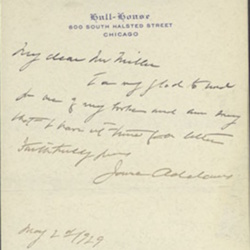 Hull-House
800 South Halsted Street
Chicago
My dear Mr Miller
I am very glad to send
you one of my books and am sorry
that I have not
Faithfully yours
Jane Addams
May 2d 1929